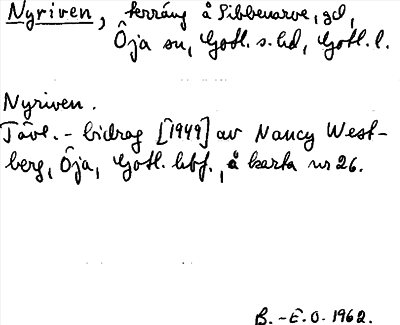 Nyriven, terräng å Sibbenarve, gd,
Öja sn, Gotl. s. hd, Gotl. l.
Nyriven.
Tävl.-bidrag [1949] av Nancy West-
berg, Öja, Gotl. hbf., å karta nr 26.
B.-E.O. 1962.